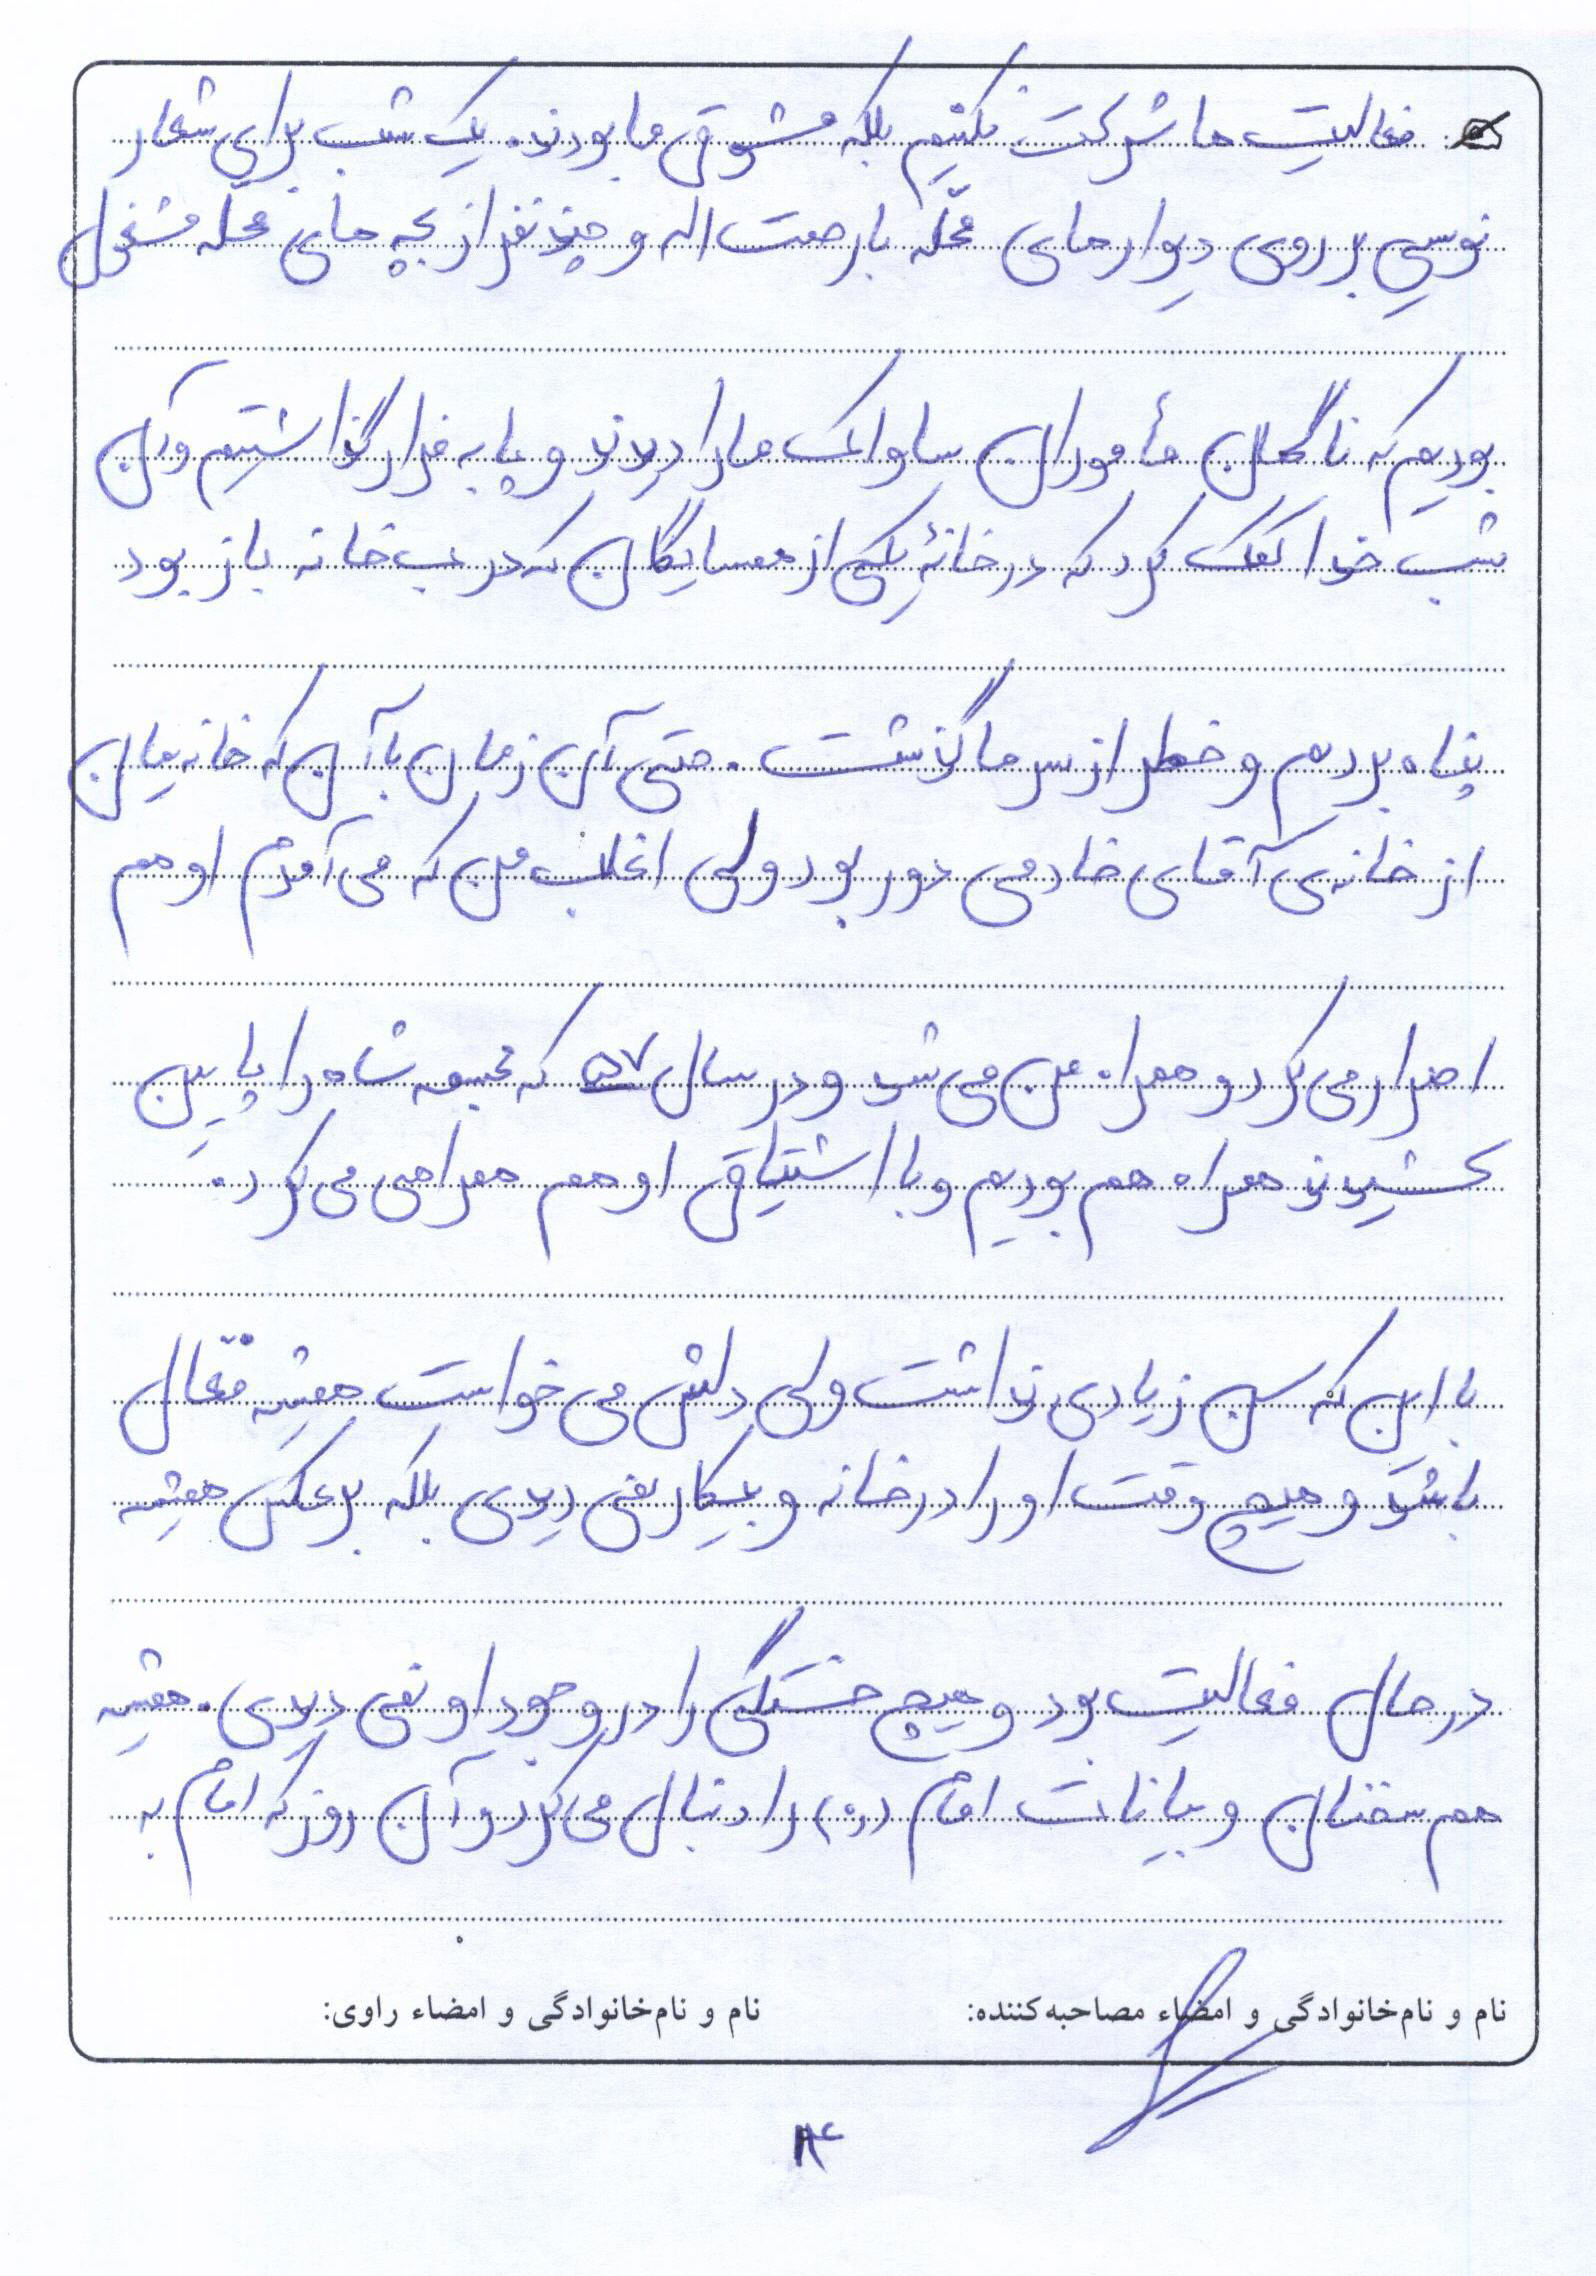 فعالیت ها شرکت نکنیم بلکه مشوق ما بودند. یک شب برای شعار
نویسی بر روی دیوارهای محلّه با رحمت اله و چند نفر از بچه های محله مشغول
بودیم که ناگهان مأموران ساواک ما را دیدند و پا به فرار گذاشتیم و آن
شب خدا کمک کرد که در خانهٔ یکی از همسایگان که درب خانه باز بود
پناه بردیم و خطر از سر ما گذشت. حتی آن زمان با آن که خانه یمان
از خانه ی آقای خادمی دور بود ولی اغلب من که می آمدم او هم
اصرار می کرد و همراه من می شد و در سال ۵۷ که مجسمه شاه را پایین
کشیدند همراه هم بودیم و با اشتیاق او هم همراهی می کرد.
با این که سن زیادی نداشت ولی دلش می خواست همیشه فعّال
باشد و هیچ وقت او را در خانه و بیکار نمی دیدی بلکه برعکس همیشه
در حال فعالیت بود و هیچ خستگی را در وجود او نمی دیدی. همیشه
هم سخنان و بیانات امام (ره) را دنبال می کرد و آن روز که امام به
نام و نام‌خانوادگی و امضاء مصاحبه‌کننده: نام و نام‌خانوادگی و امضاء راوی: